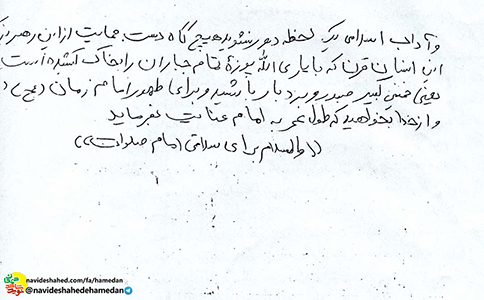 و آداب اسلامی یک لحظه دور نشوید هیچ گاه دست حمایت از این رهبر
این انسان قرن که با یاری الله پوزهٔ تمام جباران را بخاک کشیده است
یعنی خمینی کبیر صبور و بردبار باشید و برای ظهور امام زمان (عج)
و از خدا بخواهید که طول عمر به امام عنایت بفرماید
((والسلام برای سلامتی امام صلوات))
navideshahed.com/fa/hamedan
@navideshahedehamedan